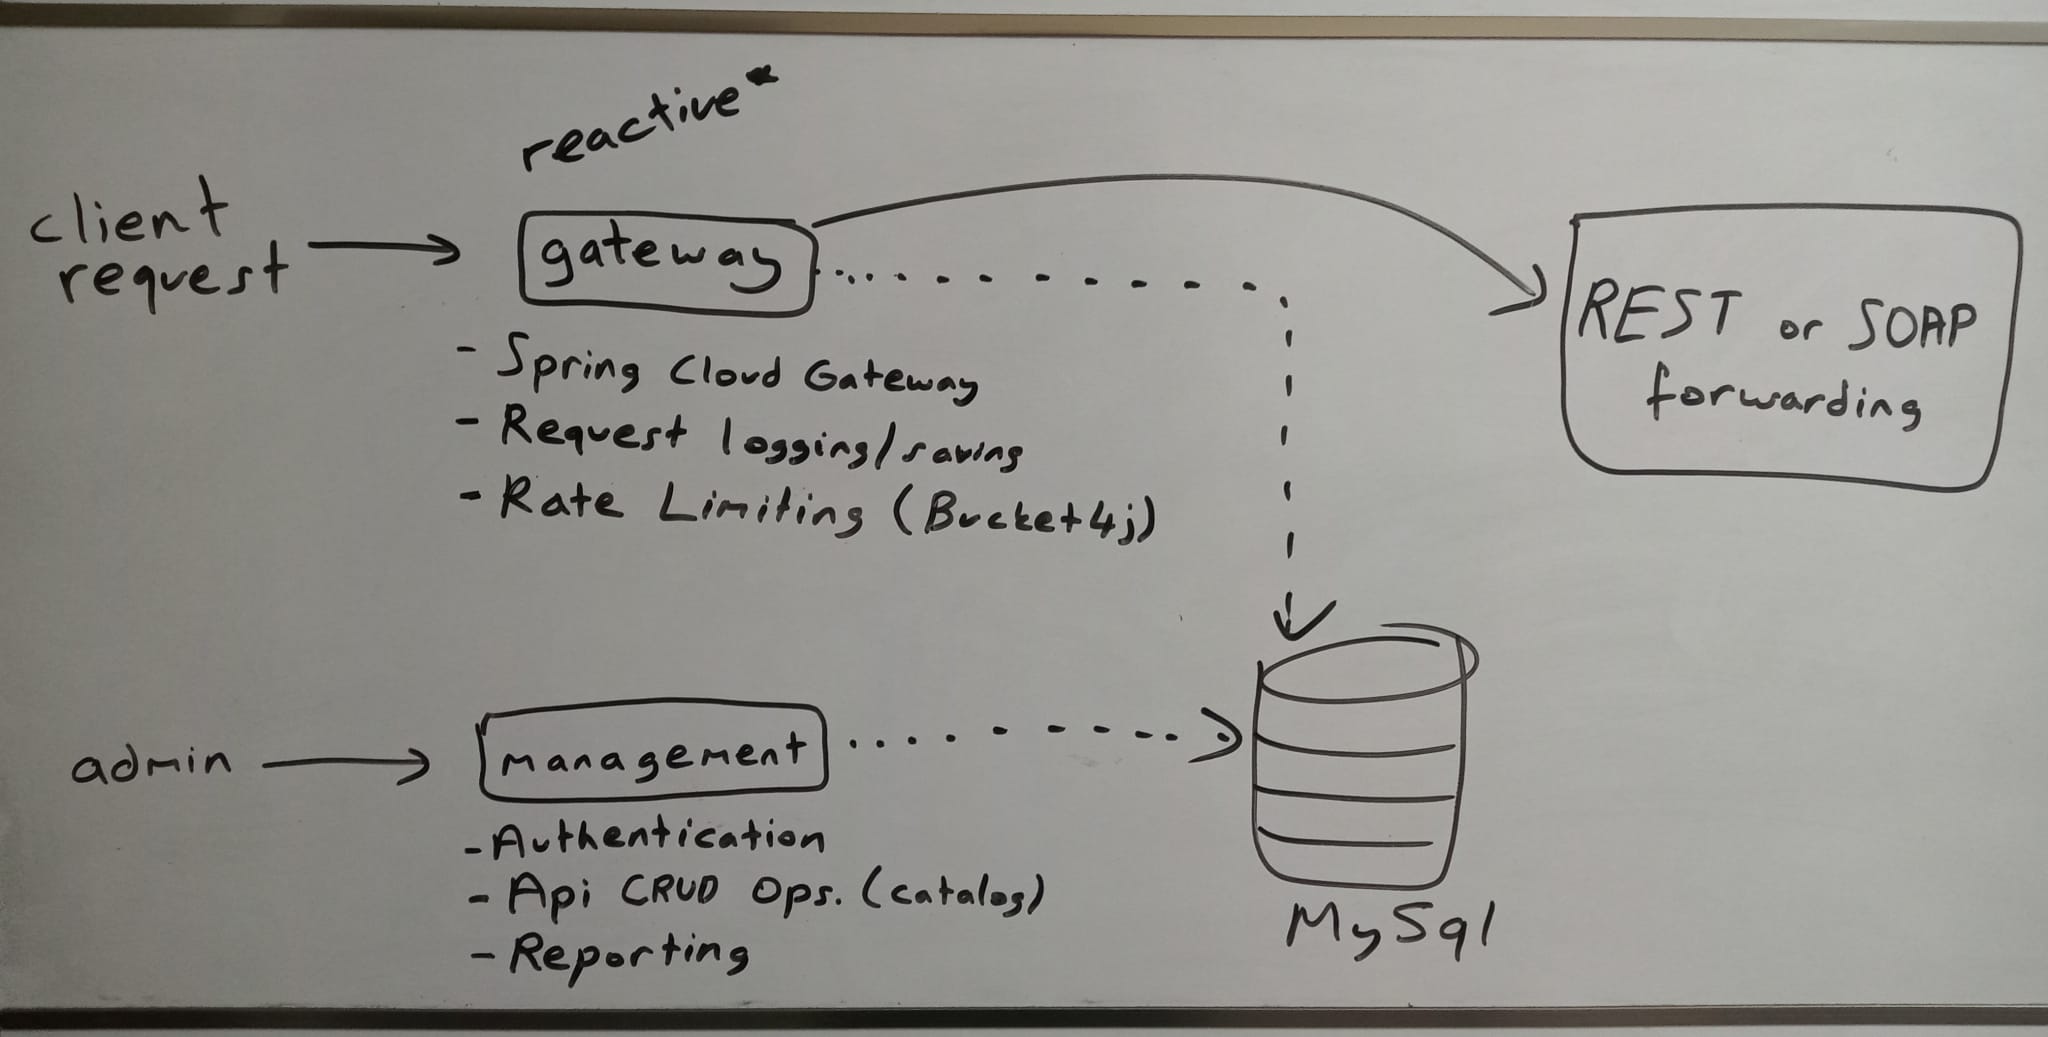 reactive*
client
request
gateway
- Spring Cloud Gateway
- Request logging/saving
- Rate Limiting (Bucket4j)
REST or SOAP
forwarding
admin
management
- Authentication
- Api CRUD Ops. (catalog)
- Reporting
MySql